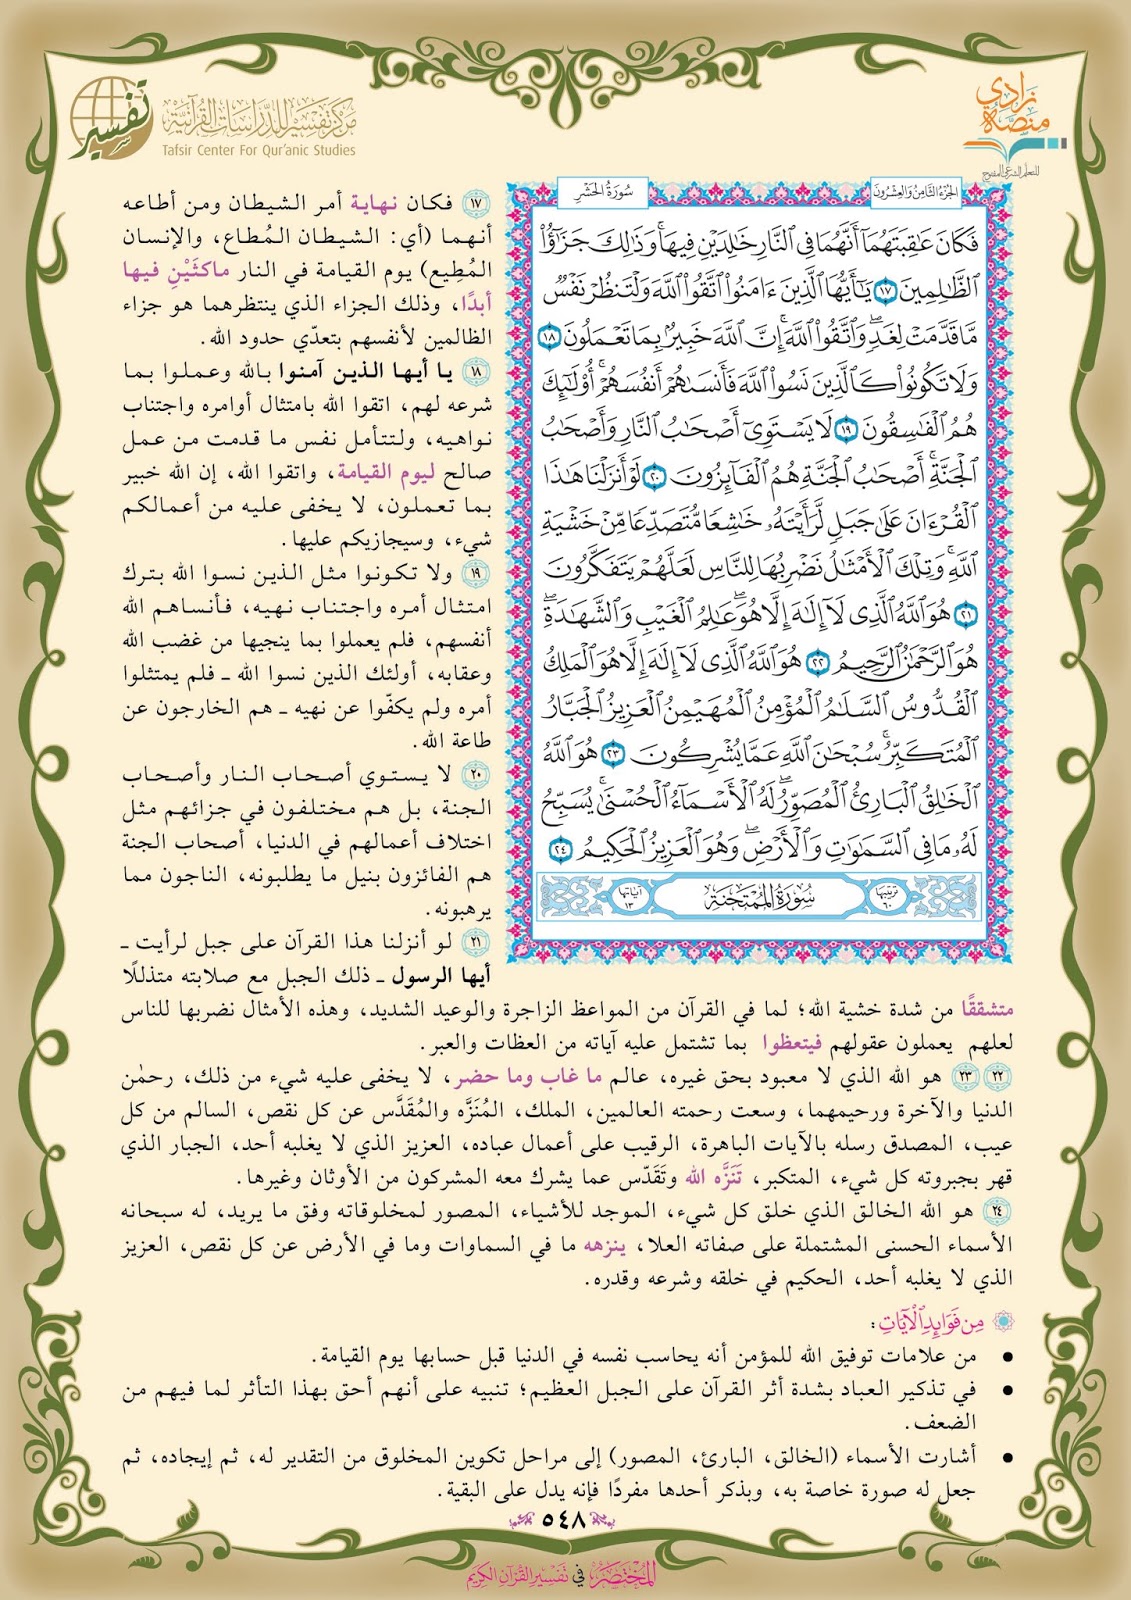 تفسير
مركز تفسير للدراسات القرآنية
Tafsir Center For Qur'anic Studies
منصة زادي
للتعلم الشرعي المفتوح
الجزء الثامن والعشرون
سورة الحشر
فَكَانَ عَٰقِبَتَهُمَآ أَنَّهُمَا فِي ٱلنَّارِ خَٰلِدَيۡنِ فِيهَاۚ وَذَٰلِكَ جَزَٰٓؤُاْ
ٱلظَّٰلِمِينَ ١٧ يَٰٓأَيُّهَا ٱلَّذِينَ ءَامَنُواْ ٱتَّقُواْ ٱللَّهَ وَلۡتَنظُرۡ نَفۡسٞ
مَّا قَدَّمَتۡ لِغَدٖۖ وَٱتَّقُواْ ٱللَّهَۚ إِنَّ ٱللَّهَ خَبِيرُۢ بِمَا تَعۡمَلُونَ ١٨
وَلَا تَكُونُواْ كَٱلَّذِينَ نَسُواْ ٱللَّهَ فَأَنسَىٰهُمۡ أَنفُسَهُمۡۚ أُوْلَٰٓئِكَ
هُمُ ٱلۡفَٰسِقُونَ ١٩ لَا يَسۡتَوِيٓ أَصۡحَٰبُ ٱلنَّارِ وَأَصۡحَٰبُ
ٱلۡجَنَّةِۚ أَصۡحَٰبُ ٱلۡجَنَّةِ هُمُ ٱلۡفَآئِزُونَ ٢٠ لَوۡ أَنزَلۡنَا هَٰذَا
ٱلۡقُرۡءَانَ عَلَىٰ جَبَلٖ لَّرَأَيۡتَهُۥ خَٰشِعٗا مُّتَصَدِّعٗا مِّنۡ خَشۡيَةِ
ٱللَّهِۚ وَتِلۡكَ ٱلۡأَمۡثَٰلُ نَضۡرِبُهَا لِلنَّاسِ لَعَلَّهُمۡ يَتَفَكَّرُونَ
٢١ هُوَ ٱللَّهُ ٱلَّذِي لَآ إِلَٰهَ إِلَّا هُوَۖ عَٰلِمُ ٱلۡغَيۡبِ وَٱلشَّهَٰدَةِۖ
هُوَ ٱلرَّحۡمَٰنُ ٱلرَّحِيمُ ٢٢ هُوَ ٱللَّهُ ٱلَّذِي لَآ إِلَٰهَ إِلَّا هُوَ ٱلۡمَلِكُ
ٱلۡقُدُّوسُ ٱلسَّلَٰمُ ٱلۡمُؤۡمِنُ ٱلۡمُهَيۡمِنُ ٱلۡعَزِيزُ ٱلۡجَبَّارُ
ٱلۡمُتَكَبِّرُۚ سُبۡحَٰنَ ٱللَّهِ عَمَّا يُشۡرِكُونَ ٢٣ هُوَ ٱللَّهُ
ٱلۡخَٰلِقُ ٱلۡبَارِئُ ٱلۡمُصَوِّرُۖ لَهُ ٱلۡأَسۡمَآءُ ٱلۡحُسۡنَىٰۚ يُسَبِّحُ
لَهُۥ مَا فِي ٱلسَّمَٰوَٰتِ وَٱلۡأَرۡضِۖ وَهُوَ ٱلۡعَزِيزُ ٱلۡحَكِيمُ ٢٤
ترتيبها ٦٠ سُورَةُ المُمْتَحنَة آياتها ١٣
١٧ فكان نهاية أمر الشيطان ومن أطاعه
أنهما (أي: الشيطان المُطاع، والإنسان
المُطِيع) يوم القيامة في النار ماكثَيْنِ فيها
أبدًا، وذلك الجزاء الذي ينتظرهما هو جزاء
الظالمين لأنفسهم بتعدّي حدود الله.
١٨ يا أيها الذين آمنوا بالله وعملوا بما
شرعه لهم، اتقوا الله بامتثال أوامره واجتناب
نواهيه، ولتتأمل نفس ما قدمت من عمل
صالح ليوم القيامة، واتقوا الله، إن الله خبير
بما تعملون، لا يخفى عليه من أعمالكم
شيء، وسيجازيكم عليها.
١٩ ولا تكونوا مثل الذين نسوا الله بترك
امتثال أمره واجتناب نهيه، فأنساهم الله
أنفسهم، فلم يعملوا بما ينجيها من غضب الله
وعقابه، أولئك الذين نسوا الله ـ فلم يمتثلوا
أمره ولم يكفّوا عن نهيه ـ هم الخارجون عن
طاعة الله.
٢٠ لا يستوي أصحاب النار وأصحاب
الجنة، بل هم مختلفون في جزائهم مثل
اختلاف أعمالهم في الدنيا، أصحاب الجنة
هم الفائزون بنيل ما يطلبونه، الناجون مما
يرهبونه.
٢١ لو أنزلنا هذا القرآن على جبل لرأيت ـ
أيها الرسول ـ ذلك الجبل مع صلابته متذللًا
متشققًا من شدة خشية الله؛ لما في القرآن من المواعظ الزاجرة والوعيد الشديد، وهذه الأمثال نضربها للناس
لعلهم يعملون عقولهم فيتعظوا بما تشتمل عليه آياته من العظات والعبر.
٢٢ ٢٣ هو الله الذي لا معبود بحق غيره، عالم ما غاب وما حضر، لا يخفى عليه شيء من ذلك، رحمٰن
الدنيا والآخرة ورحيمهما، وسعت رحمته العالمين، الملك، المُنَزَّه والمُقَدَّس عن كل نقص، السالم من كل
عيب، المصدق رسله بالآيات الباهرة، الرقيب على أعمال عباده، العزيز الذي لا يغلبه أحد، الجبار الذي
قهر بجبروته كل شيء، المتكبر، تَنَزَّه الله وتَقَدّس عما يشرك معه المشركون من الأوثان وغيرها.
٢٤ هو الله الخالق الذي خلق كل شيء، الموجد للأشياء، المصور لمخلوقاته وفق ما يريد، له سبحانه
الأسماء الحسنى المشتملة على صفاته العلا، ينزهه ما في السماوات وما في الأرض عن كل نقص، العزيز
الذي لا يغلبه أحد، الحكيم في خلقه وشرعه وقدره.
مِن فَوَائِدِ الْآيَاتِ:
• من علامات توفيق الله للمؤمن أنه يحاسب نفسه في الدنيا قبل حسابها يوم القيامة.
• في تذكير العباد بشدة أثر القرآن على الجبل العظيم؛ تنبيه على أنهم أحق بهذا التأثر لما فيهم من
الضعف.
• أشارت الأسماء (الخالق، البارئ، المصور) إلى مراحل تكوين المخلوق من التقدير له، ثم إيجاده، ثم
جعل له صورة خاصة به، وبذكر أحدها مفردًا فإنه يدل على البقية.
٥٤٨
المختصر في تفسير القرآن الكريم